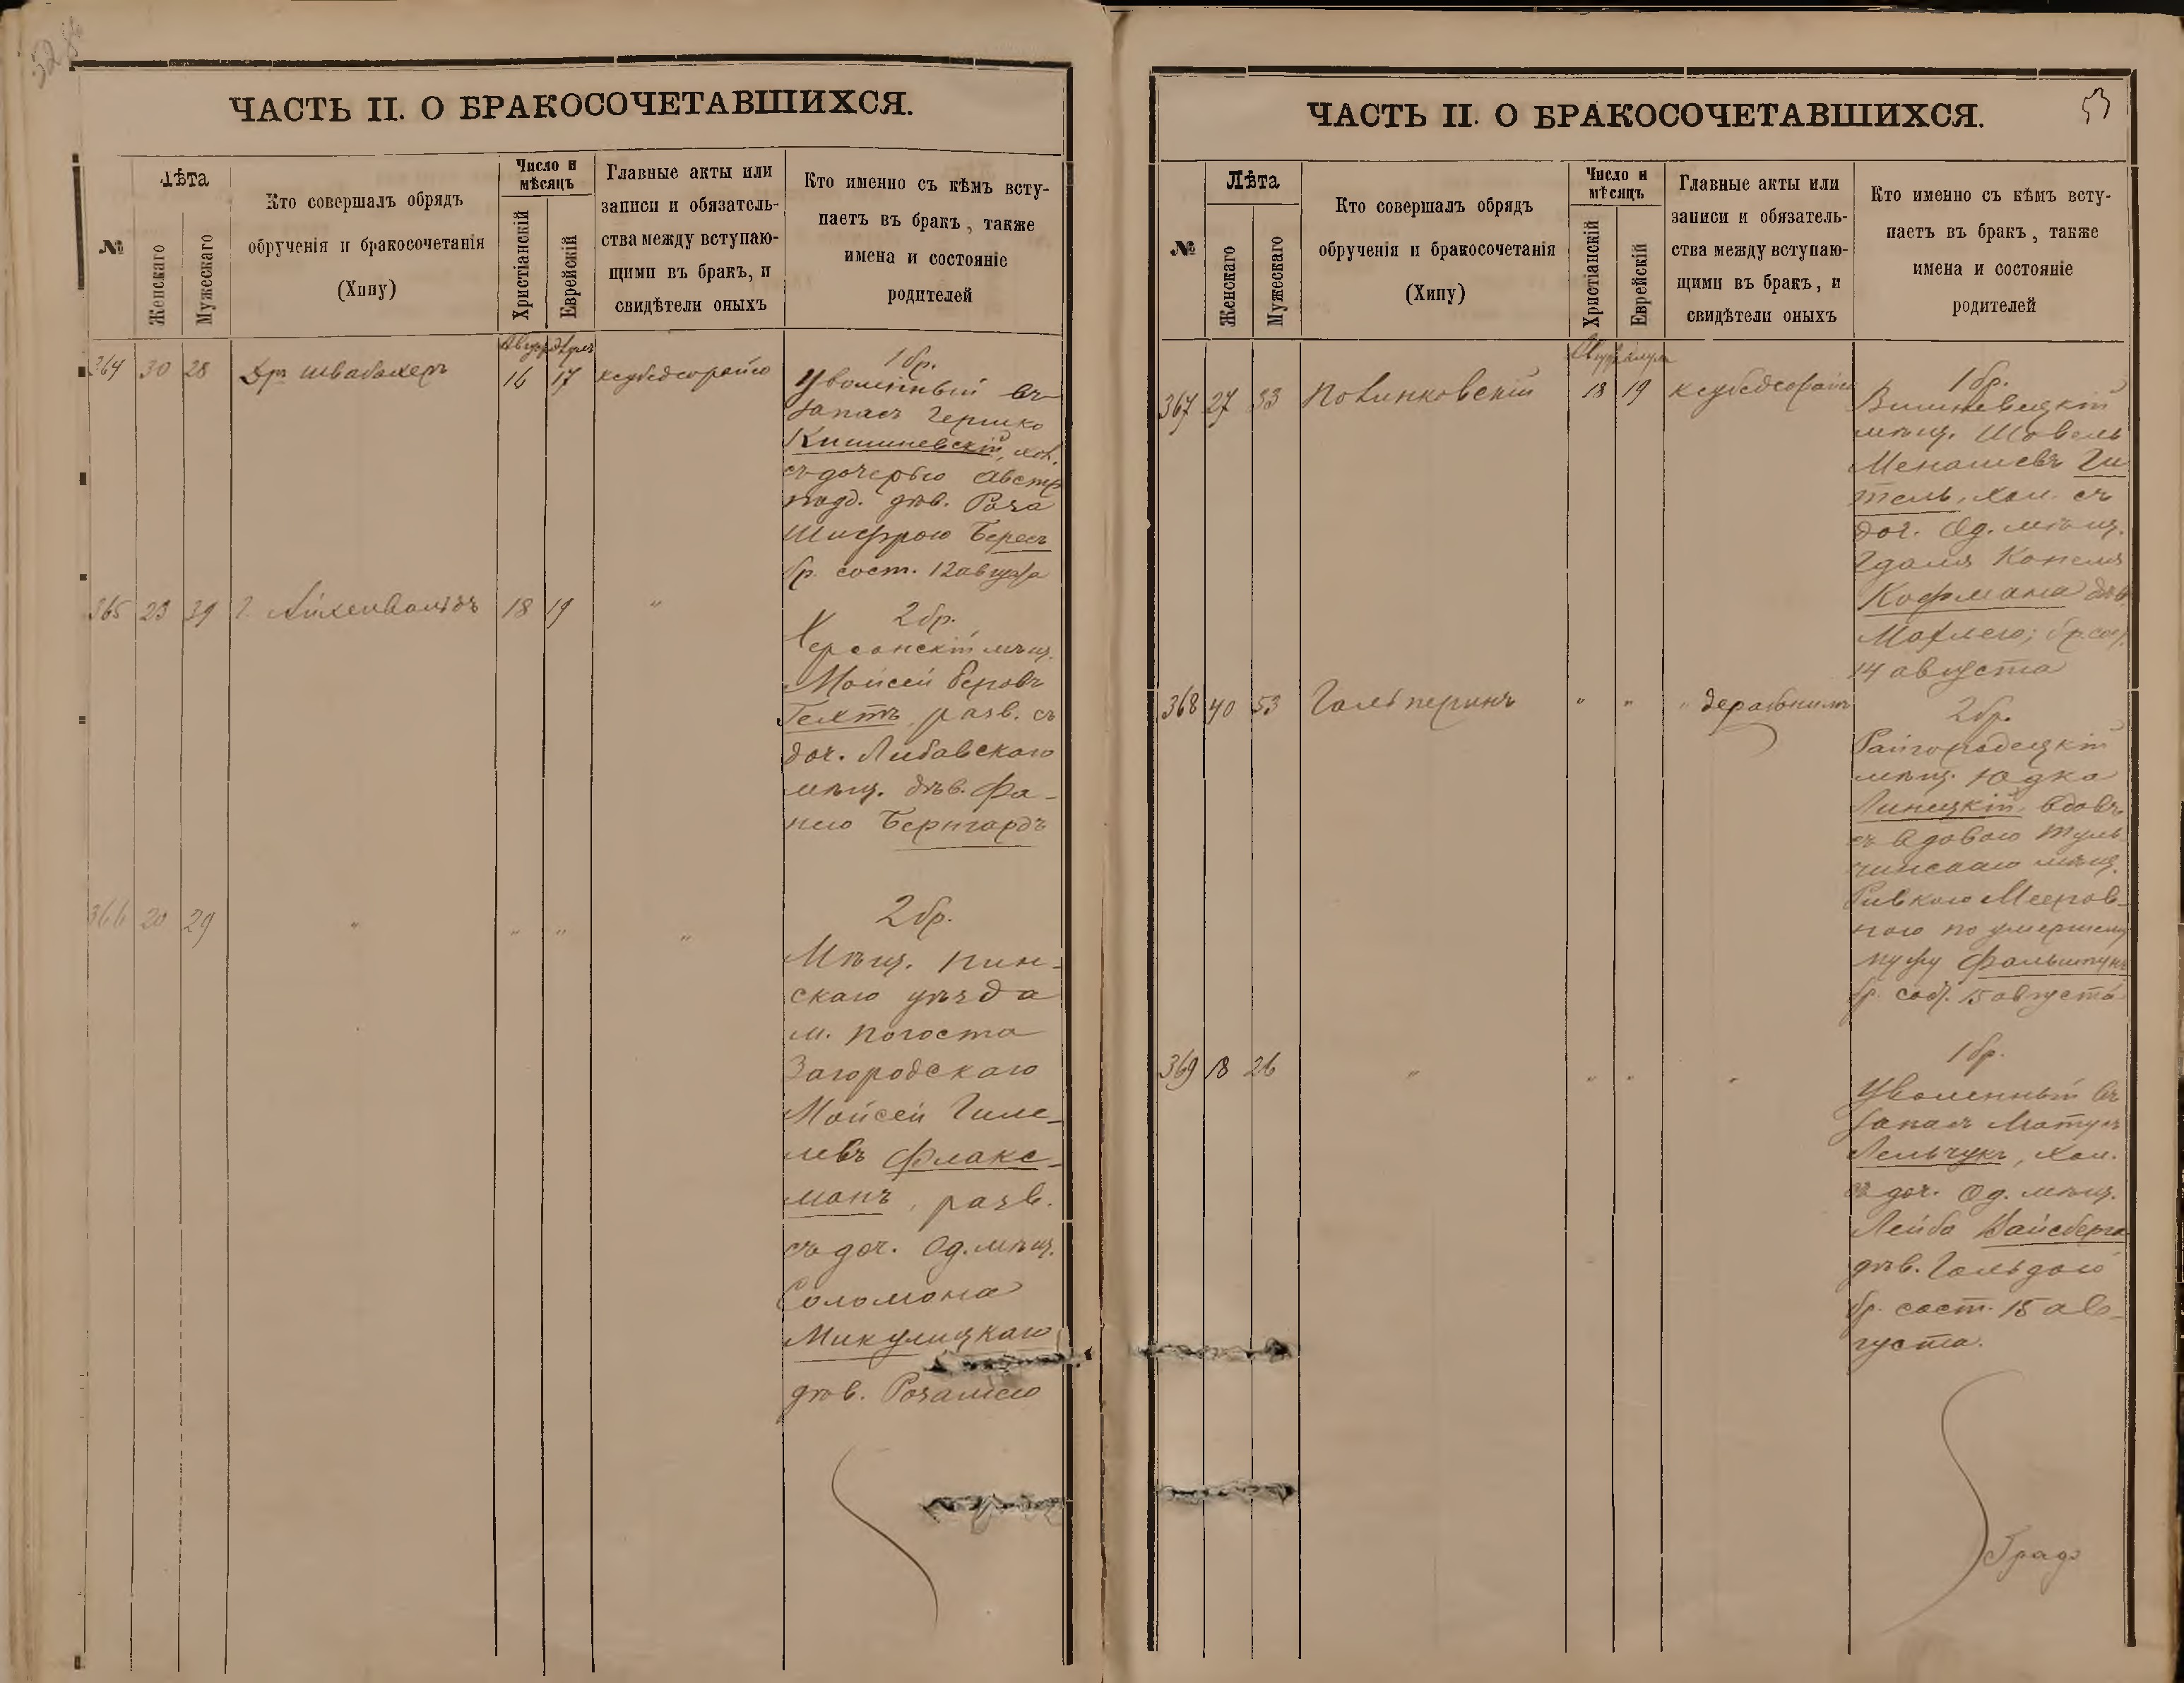 ЧАСТЬ II. О БРАКОСОЧЕТАВШИХСЯ.
№
Лѣта
Женскаго
Мужескаго
Кто совершалъ обрядъ
обрученія и бракосочетанія
(Хипу)
Число и
мѣсяцъ
Христіанскій
Еврейскій
Главные акты или
записи и обязатель-
ства между вступаю-
щими въ бракъ, и
свидѣтели оныхъ
Кто именно съ кѣмъ всту-
паетъ въ бракъ, также
имена и состояніе
родителей
364 30 28 Др. Швабахеръ 16 17
1 бр.
Уволенный въ
запасъ Гершко
Кишиневскій, хол.
съ дочерью Австр.
подд. дѣв. Роза
Шифрою Бересъ
бр. сост. 12 августа
365 23 39 Г. Айхенвальдъ 18 19 "
2 бр.
Херсонскій мѣщ.
Мойсей Беровъ
Гехтъ, разв. съ
доч. Либавскаго
мѣщ. дѣв. Фа-
нею Бернгардъ
366 20 29 " " " "
2 бр.
Мѣщ. Пин-
скаго уѣзда
м. Погоста
Загородскаго
Мойсей Гиле-
левъ Флакс-
манъ, разв.
съ доч. Од. мѣщ.
Соломона
Микулицкаго
дѣв. Розаліею
ЧАСТЬ II. О БРАКОСОЧЕТАВШИХСЯ.
53
№
Лѣта
Женскаго
Мужескаго
Кто совершалъ обрядъ
обрученія и бракосочетанія
(Хипу)
Число и
мѣсяцъ
Христіанскій
Еврейскій
Главные акты или
записи и обязатель-
ства между вступаю-
щими въ бракъ, и
свидѣтели оныхъ
Кто именно съ кѣмъ всту-
паетъ въ бракъ, также
имена и состояніе
родителей
367 27 33 Повинковскій 18 19
1 бр.
Вишневецкій
мѣщ. Шовель
Менашевъ Ги
тель, хол. съ
доч. Од. мѣщ.
Гдаля Копеля
Кофмана дѣв.
Махлею; бр. сост.
14 августа
368 40 53 Гальперинъ " " "
2 бр.
Райгородецкій
мѣщ. Юдка
Линецкій вдовъ
съ вдовою Туль-
чинскаго мѣщ.
Ривкою Мееров-
ною по умершему
мужу
бр. сост. 15 августа
369 18 26 " " " "
1 бр.
Уволенный въ
запасъ Матусъ
Лельчукъ, хол.
съ доч. Од. мѣщ.
Лейба Вайсберга
дѣв. Гольдою
бр. сост. 15 ав-
густа.